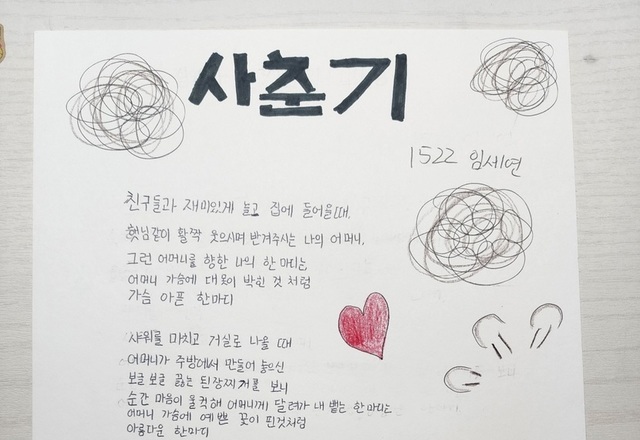 사춘기
1522 임세연
친구들과 재미있게 놀고 집에 들어올때,
햇님같이 활짝 웃으시며 반겨주시는 나의 어머니,
그런 어머니를 향한 나의 한마디는,
어머니 가슴에 대못이 박힌 것 처럼
가슴 아픈 한마디
샤워를 마치고 거실로 나올 때
어머니가 주방에서 만들어 놓으신
보글보글 끓는 된장찌개를 보니
순간 마음이 울컥해 어머니께 달려가 내 뱉는 한마디는
어머니 가슴에 예쁜 꽃이 핀것처럼
아름다운 한마디